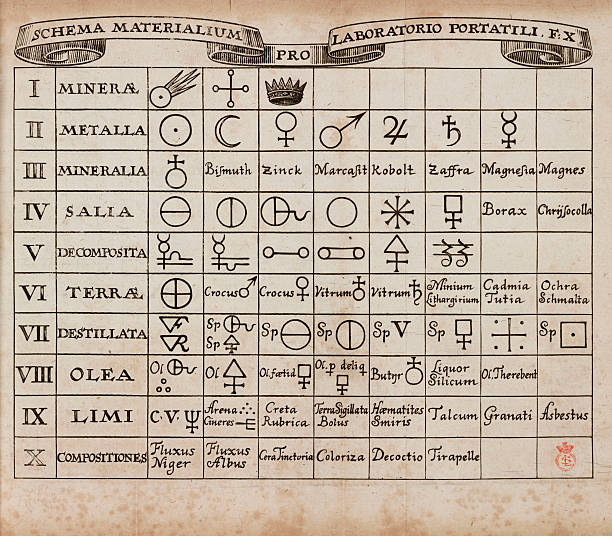 SCHEMA MATERIALIUM
PRO
LABORATORIO PORTATILI. F.X
I MINERÆ
II METALLA
III MINERALIA Bismuth Zinck Marcasit Kobolt Zaffra Magnesia Magnes
IV SALIA Borax Chrijsocolla
V DECOMPOSITA
VI TERRÆ Crocus Crocus Vitrum Vitrum Minium Lithargirium Cadmia Tutia Ochra Schmalta
VII DESTILLATA Sp Sp Sp Sp Sp Sp Sp
VIII OLEA Ol Ol Ol. fœtid Ol. p deliq Butyr Liquor Silicum Ol. Therebent
IX LIMI C.V. Arena Cineres Creta Rubrica Terra Sigillata Bolus Hæmatites Smiris Talcum Granati Asbestus
X COMPOSITIONES Fluxus Niger Fluxus Albus Cera Tinctoria Coloriza Decoctio Tirapelle